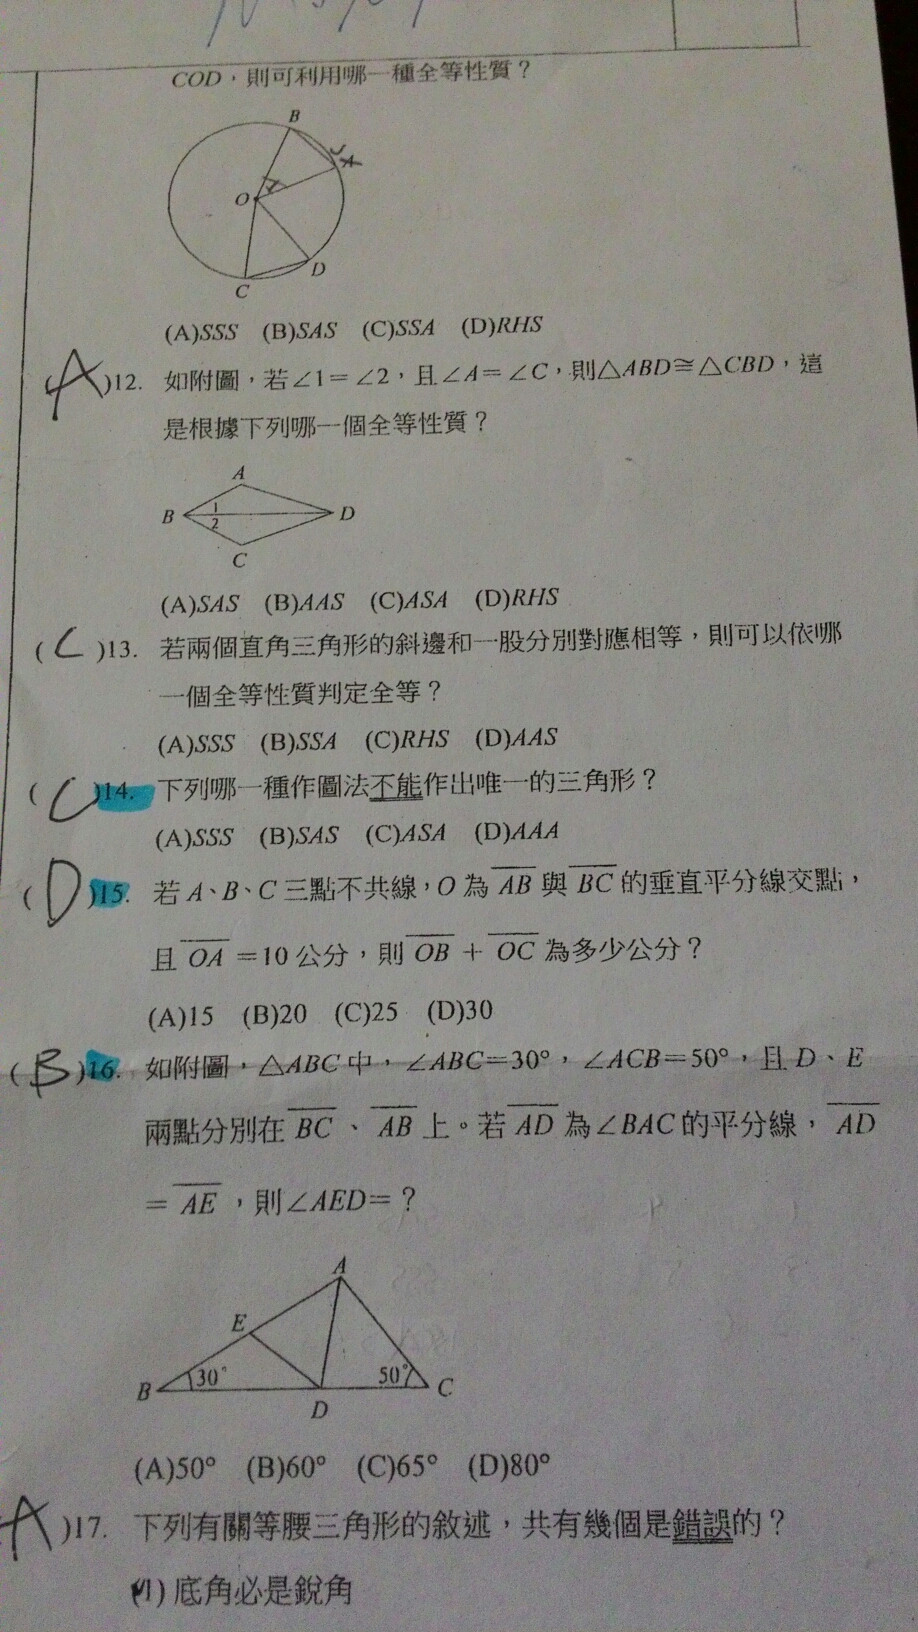 COD，則可利用哪一種全等性質？
B
A
O
D
C
(A)SSS (B)SAS (C)SSA (D)RHS
(A)12. 如附圖，若∠1＝∠2，且∠A＝∠C，則△ABD≅△CBD，這
是根據下列哪一個全等性質？
A
B 1 D
2
C
(A)SAS (B)AAS (C)ASA (D)RHS
(C)13. 若兩個直角三角形的斜邊和一股分別對應相等，則可以依哪
一個全等性質判定全等？
(A)SSS (B)SSA (C)RHS (D)AAS
(C)14. 下列哪一種作圖法不能作出唯一的三角形？
(A)SSS (B)SAS (C)ASA (D)AAA
(D)15. 若 A、B、C 三點不共線，O 為 AB 與 BC 的垂直平分線交點，
且 OA ＝10 公分，則 OB ＋ OC 為多少公分？
(A)15 (B)20 (C)25 (D)30
(B)16. 如附圖，△ABC 中，∠ABC＝30°，∠ACB＝50°，且 D、E
兩點分別在 BC 、 AB 上。若 AD 為∠BAC 的平分線， AD
＝ AE ，則∠AED＝？
A
E
B 30° 50° C
D
(A)50° (B)60° (C)65° (D)80°
A)17. 下列有關等腰三角形的敘述，共有幾個是錯誤的？
(1) 底角必是銳角